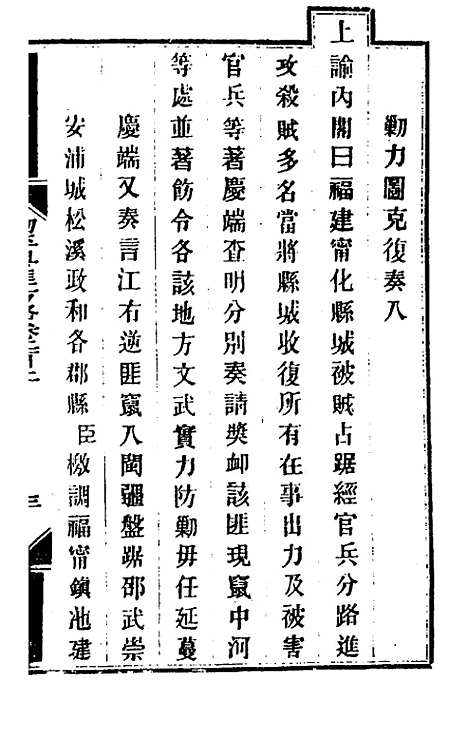 勦力圖克復奏入
上諭內閣曰福建甯化縣城被賊占踞經官兵分路進
攻殺賊多名當將縣城收復所有在事出力及被害
官兵等著慶端查明分別奏請獎卹該匪現竄中河
等處並著飭令各該地方文武實力防勦毋任延蔓
慶端又奏言江右逆匪竄入閩疆盤踞邵武崇
安浦城松溪政和各郡縣臣檄調福甯鎮池建
三